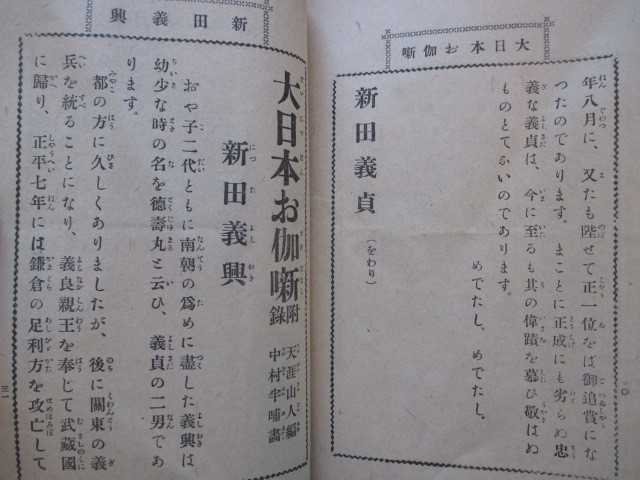 大日本お伽噺
年八月に、又たも陞せて正一位をば御追賞にな
つたのであります。まことに正成にも劣らぬ忠
義な義貞は、今に至るも其の偉蹟を慕ひ敬はぬ
ものとてないのであります。
めでたし、めでたし、
新田義貞(をわり)
一〇
新田義興
大日本お伽噺附錄
天涯山人編
中村牢哺畫
新田義興
おや子二代ともに南朝の爲めに盡した義興は
幼少な時の名を德壽丸と云ひ、義貞の二男であ
ります。
都の方に久しくありましたが、後に關東の義
兵を統ることになり、義良親王を奉じて武藏國
に歸り、正平七年には鎌倉の足利方を攻亡して